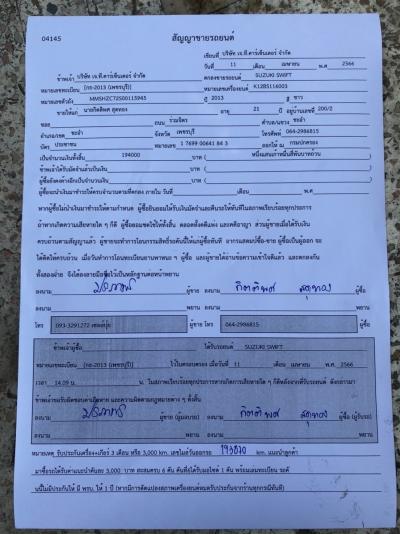 04145
สัญญาขายรถยนต์
เขียนที่ บริษัท เจ.ที.คาร์เซ็นเตอร์ จำกัด
วันที่ 11 เดือน เมษายน พ.ศ 2566
ข้าพเจ้า บริษัท เจ.ที.คาร์เซ็นเตอร์ จำกัด ตกลงขายรถยนต์ SUZUKI SWIFT
หมายเลขทะเบียน (กธ-2013 (เพชรบุรี)) หมายเลขเครื่อง K12BS116003
หมายเลขตัวถัง MMSHZC72S00115945 ปี 2013 สี ขาว
ขายให้แก่ นายกิตติพศ สุดทอง อายุ 21 ปี อยู่บ้านเลขที่ 200/2
ซอย ถนน ร่วมจิตร ตำบล/แขวง ชะอำ
อำเภอ/เขต ชะอำ จังหวัด เพชรบุรี โทรศัพท์ 064-2986815
บัตร ประชาชน หมายเลข 1 7699 00641 84 3 ออกให้ ณ กรมปกครอง
เป็นจำนวนเงินทั้งสิ้น 194000 บาท ( หนึ่งแสนเก้าหมื่นสี่พันบาทถ้วน )
ข้าพเจ้าได้รับมัดจำแล้วเป็นเงิน บาท ( )
ผู้ซื้อยังคงค้างอีกเป็นจำนวนเงิน บาท ( )
ผู้ซื้อจะนำเงินมาชำระให้ครบจำนวนตามที่ตกลง ภายใน วันที่ เดือน พ.ศ
หากผู้ซื้อไม่นำเงินมาชำระให้ตามกำหนด ผู้ซื้อยินยอมให้ริบเงินมัดจำและคืนรถให้ทันทีในสภาพเรียบร้อยทุกประการ
ถ้าหากเกิดความเสียหายใด ๆ ก็ดี ผู้ซื้อยอมชดใช้ให้ทั้งสิ้น ตลอดทั้งคดีแพ่ง และคดีอาญา ส่วนผู้ขายเมื่อได้รับเงิน
ครบถ้วนตามสัญญาแล้ว ผู้ขายจะทำการโอนกรรมสิทธิ์รถคันนี้ให้แก่ผู้ซื้อทันที อากรแสตมป์ซื้อ-ขาย ผู้ซื้อเป็นผู้ออก จะ
ได้คิดให้ครบถ้วน เมื่อวันทำการโอนทะเบียนยานพาหนะ ๆ ผู้ซื้อ และผู้ขายได้อ่านข้อความเข้าใจดีแล้ว และตกลงกัน
ทั้งสองฝ่าย จึงได้ลงลายมือชื่อไว้เป็นหลักฐานต่อหน้าพยาน
ลงนาม ผู้ขาย ลงนาม กิตติพศ สุดทอง ผู้ซื้อ
ลงนาม พยาน ลงนาม พยาน
โทร 093-3291272 ผู้ขาย โทร 064-2986815 ผู้ซื้อ
ข้าพเจ้าผู้ซื้อ ได้รับรถยนต์ SUZUKI SWIFT
หมายเลขทะเบียน (กธ-2013 (เพชรบุรี)) ไว้ในครอบครอง เมื่อวันที่ 11 เดือน เมษายน พ.ศ 2566
เวลา 14.09 น. ในสภาพเรียบร้อยทุกประการหากเกิดการเสียหายใด ๆ ก็ดีหลังจากที่รับรถยนต์ ดังกล่าวมา
ลงนาม ผู้ขาย (ผู้มอบรถ) ลงนาม กิตติพศ สุดทอง ผู้ซื้อ (ผู้รับรถ)
ลงนาม พยาน ลงนาม พยาน
หมายเหตุ รับประกันเครื่อง+เกียร์ 3 เดือน หรือ 3,000 km. เลขไมล์วันออกรถ 193870 km. แนะนำลูกค้า
มาซื้อรถได้รับค่าแนะนำคันละ 3,000 บาท สะสมครบ 6 คัน คันที่6ได้รับมอไซค์ 1 คัน พร้อมเลมทะเบียน รถคั
นนี้ไม่มีประกันให้ มี พรบ. ให้ 1 ปี (หากมีการดัดแปลงสภาพเครื่องยนต์หมดรับประกันจากร้านทุกกรณีทันที)